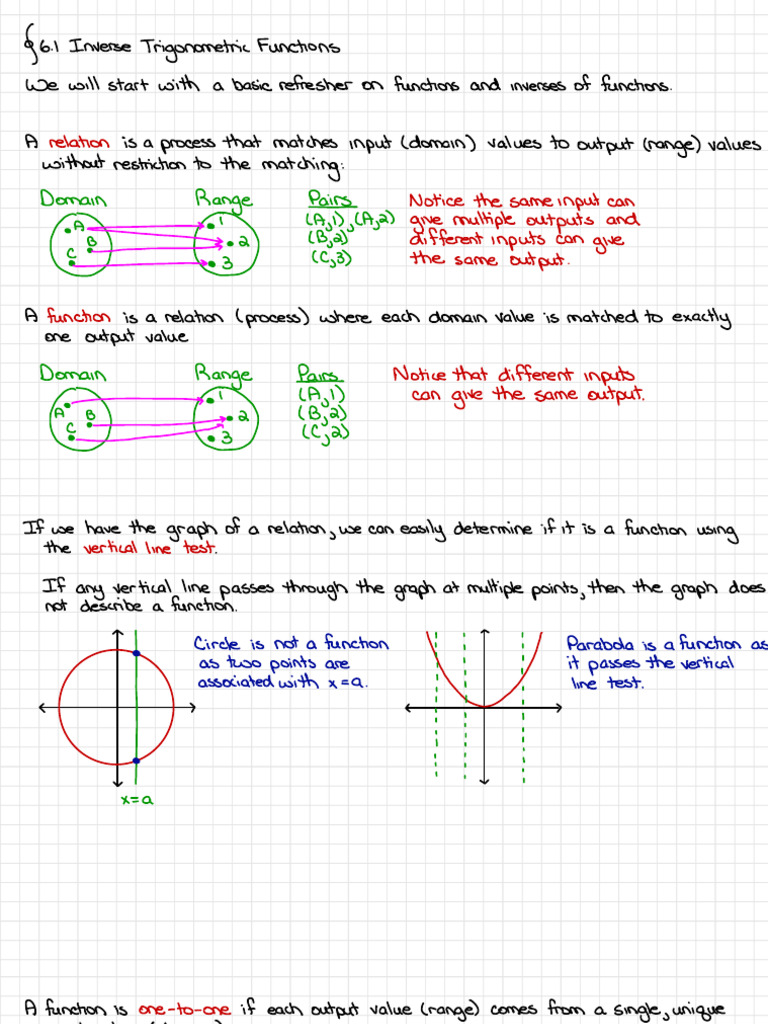 §6.1 Inverse Trigonometric Functions
We will start with a basic refresher on functions and inverses of functions.
A relation is a process that matches input (domain) values to output (range) values
without restriction to the matching:
Domain Range Pairs
A B C 1 2 3
(A,1),(A,2)
(B,2)
(C,3)
Notice the same input can
give multiple outputs and
different inputs can give
the same output.
A function is a relation (process) where each domain value is matched to exactly
one output value
Domain Range Pairs
A B C 1 2 3
(A,1)
(B,2)
(C,2)
Notice that different inputs
can give the same output.
If we have the graph of a relation, we can easily determine if it is a function using
the vertical line test.
If any vertical line passes through the graph at multiple points, then the graph does
not describe a function.
Circle is not a function
as two points are
associated with x=a.
x=a
Parabola is a function as
it passes the vertical
line test.
A function is one-to-one if each output value (range) comes from a single, unique